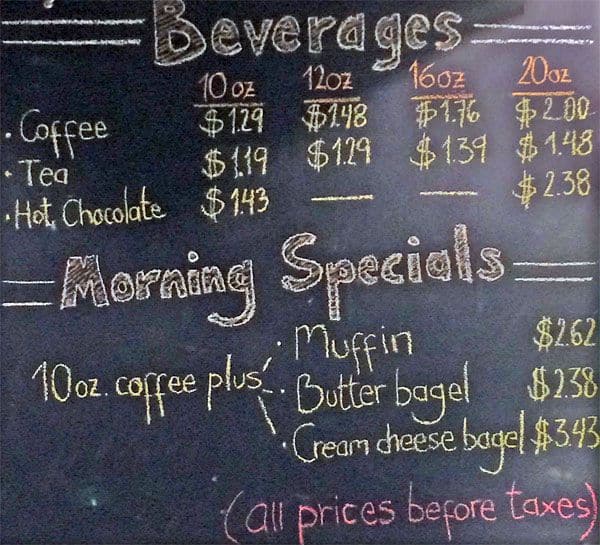 Beverages
10 oz 12oz 16oz 20oz
· Coffee $1.29 $1.48 $1.76 $2.00
· Tea $1.19 $1.29 $1.39 $1.48
· Hot Chocolate $1.43 — — $2.38
Morning Specials
10 oz. coffee plus
· Muffin $2.62
· Butter bagel $2.38
· Cream cheese bagel $3.43
(all prices before taxes)